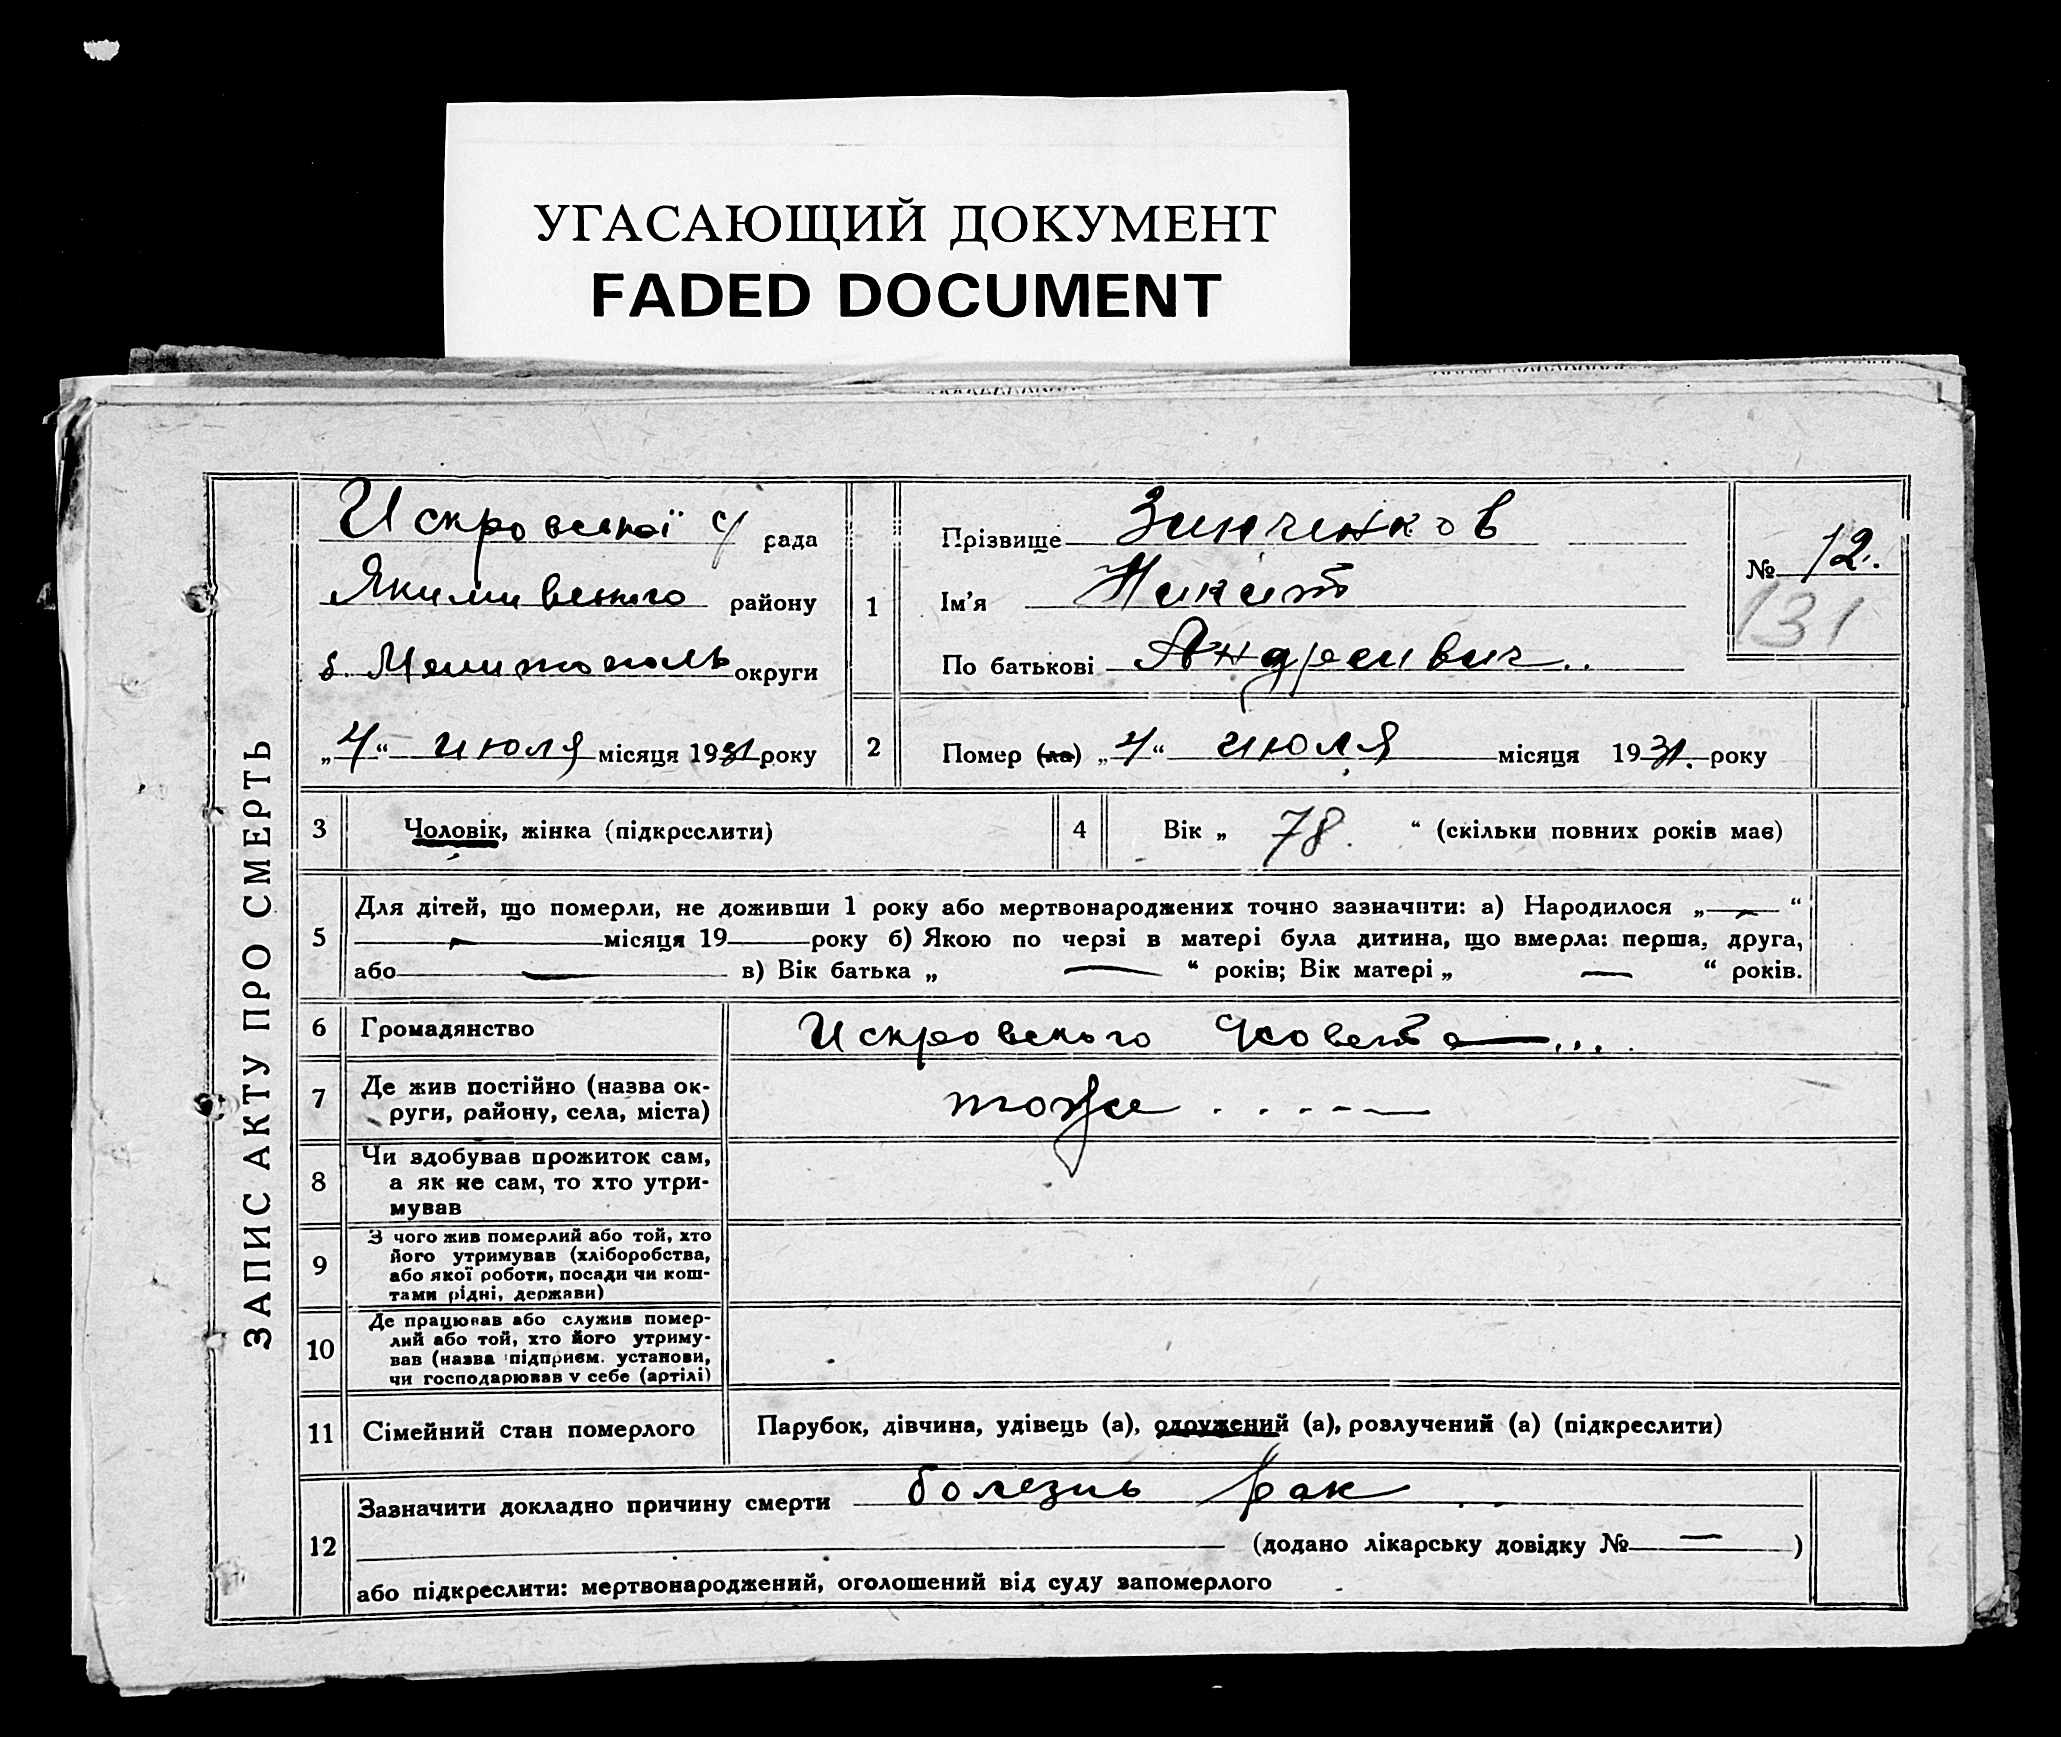 УГАСАЮЩИЙ ДОКУМЕНТ
FADED DOCUMENT
ЗАПИС АКТУ ПРО СМЕРТЬ
Искровської с/ рада
Якимивського району
б. Мелитополь округи
„4“ июля місяця 1931 року
1
Прізвище Зинченков
Ім’я Никит
По батькові Андреивич..
№ 12.
131
2
Помер (ла) „4“ июля місяця 1931. року
3 Чоловік, жінка (підкреслити)
4 Вік „ 78. “ (скільки повних років має)
5
Для дітей, що померли, не доживши 1 року або мертвонароджених точно зазначити: а) Народилося „ — “
— місяця 19 року б) Якою по черзі в матері була дитина, що вмерла: перша, друга,
або — в) Вік батька „ — “ років; Вік матері „ — “ років.
6 Громадянство Искровского
7 Де жив постійно (назва ок-
руги, району, села, міста) тоже
8 Чи здобував прожиток сам,
а як не сам, то хто утри-
мував
9 З чого жив померлий або той, хто
його утримував (хліборобства,
або якої роботи, посади чи кош-
тами рідні, держави)
10 Де працював або служив помер-
лий або той, хто його утриму-
вав (назва підприєм. установи,
чи господарював у себе (артілі)
11 Сімейний стан померлого Парубок, дівчина, удівець (а), одружений (а), розлучений (а) (підкреслити)
12 Зазначити докладно причину смерти болезнь рак
(додано лікарську довідку № — )
або підкреслити: мертвонароджений, оголошений від суду запомерлого